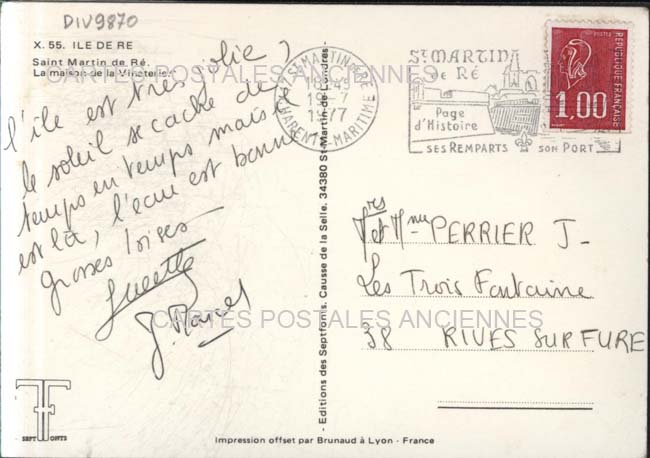 DIV9870
X. 55. ILE DE RE
Saint Martin de Ré.
La maison de la Vinaterie.
l'île est très jolie,
le soleil se cache de
temps en temps mais il
est là, l'eau est bonne
grosses bises
Lucette
CARTES POSTALES ANCIENNES
SEPT FONTS
- Editions des Septfonts, Causse de la Selle, 34380 St-Martin-de-Londres -
Impression offset par Brunaud à Lyon - France
ST MARTIN DE RE
18H45
19-7
1977
CHARENTE-MARITIME
ST MARTIN
de RÉ
Page
d'Histoire
SES REMPARTS SON PORT
POSTES
1,00
REPUBLIQUE FRANÇAISE
Mrs et Mme PERRIER J-
Les Trois Fontaine
38 RIVES SUR FURE
CARTES POSTALES ANCIENNES